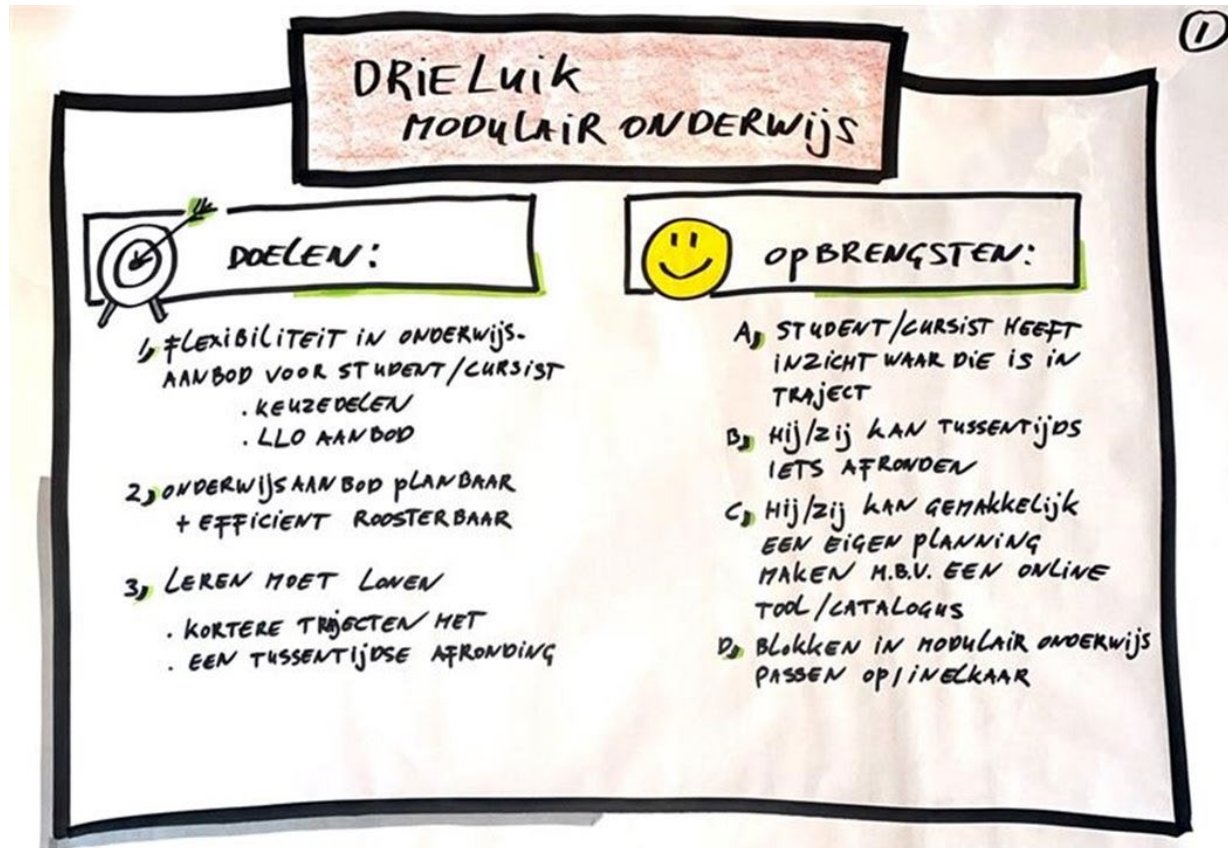 1
DRIELUIK
MODULAIR ONDERWIJS
DOELEN:
1, FLEXIBILITEIT IN ONDERWIJS-
AANBOD VOOR STUDENT/CURSIST
. KEUZEDELEN
. LLO AANBOD
2, ONDERWIJSAANBOD PLANBAAR
+ EFFICIENT ROOSTERBAAR
3, LEREN MOET LONEN
. KORTERE TRAJECTEN MET
. EEN TUSSENTIJDSE AFRONDING
OPBRENGSTEN:
A, STUDENT/CURSIST HEEFT
INZICHT WAAR DIE IS IN
TRAJECT
B, HIJ/ZIJ KAN TUSSENTIJDS
IETS AFRONDEN
C, HIJ/ZIJ KAN GEMAKKELIJK
EEN EIGEN PLANNING
MAKEN M.B.V. EEN ONLINE
TOOL/CATALOGUS
D, BLOKKEN IN MODULAIR ONDERWIJS
PASSEN OP/INELKAAR